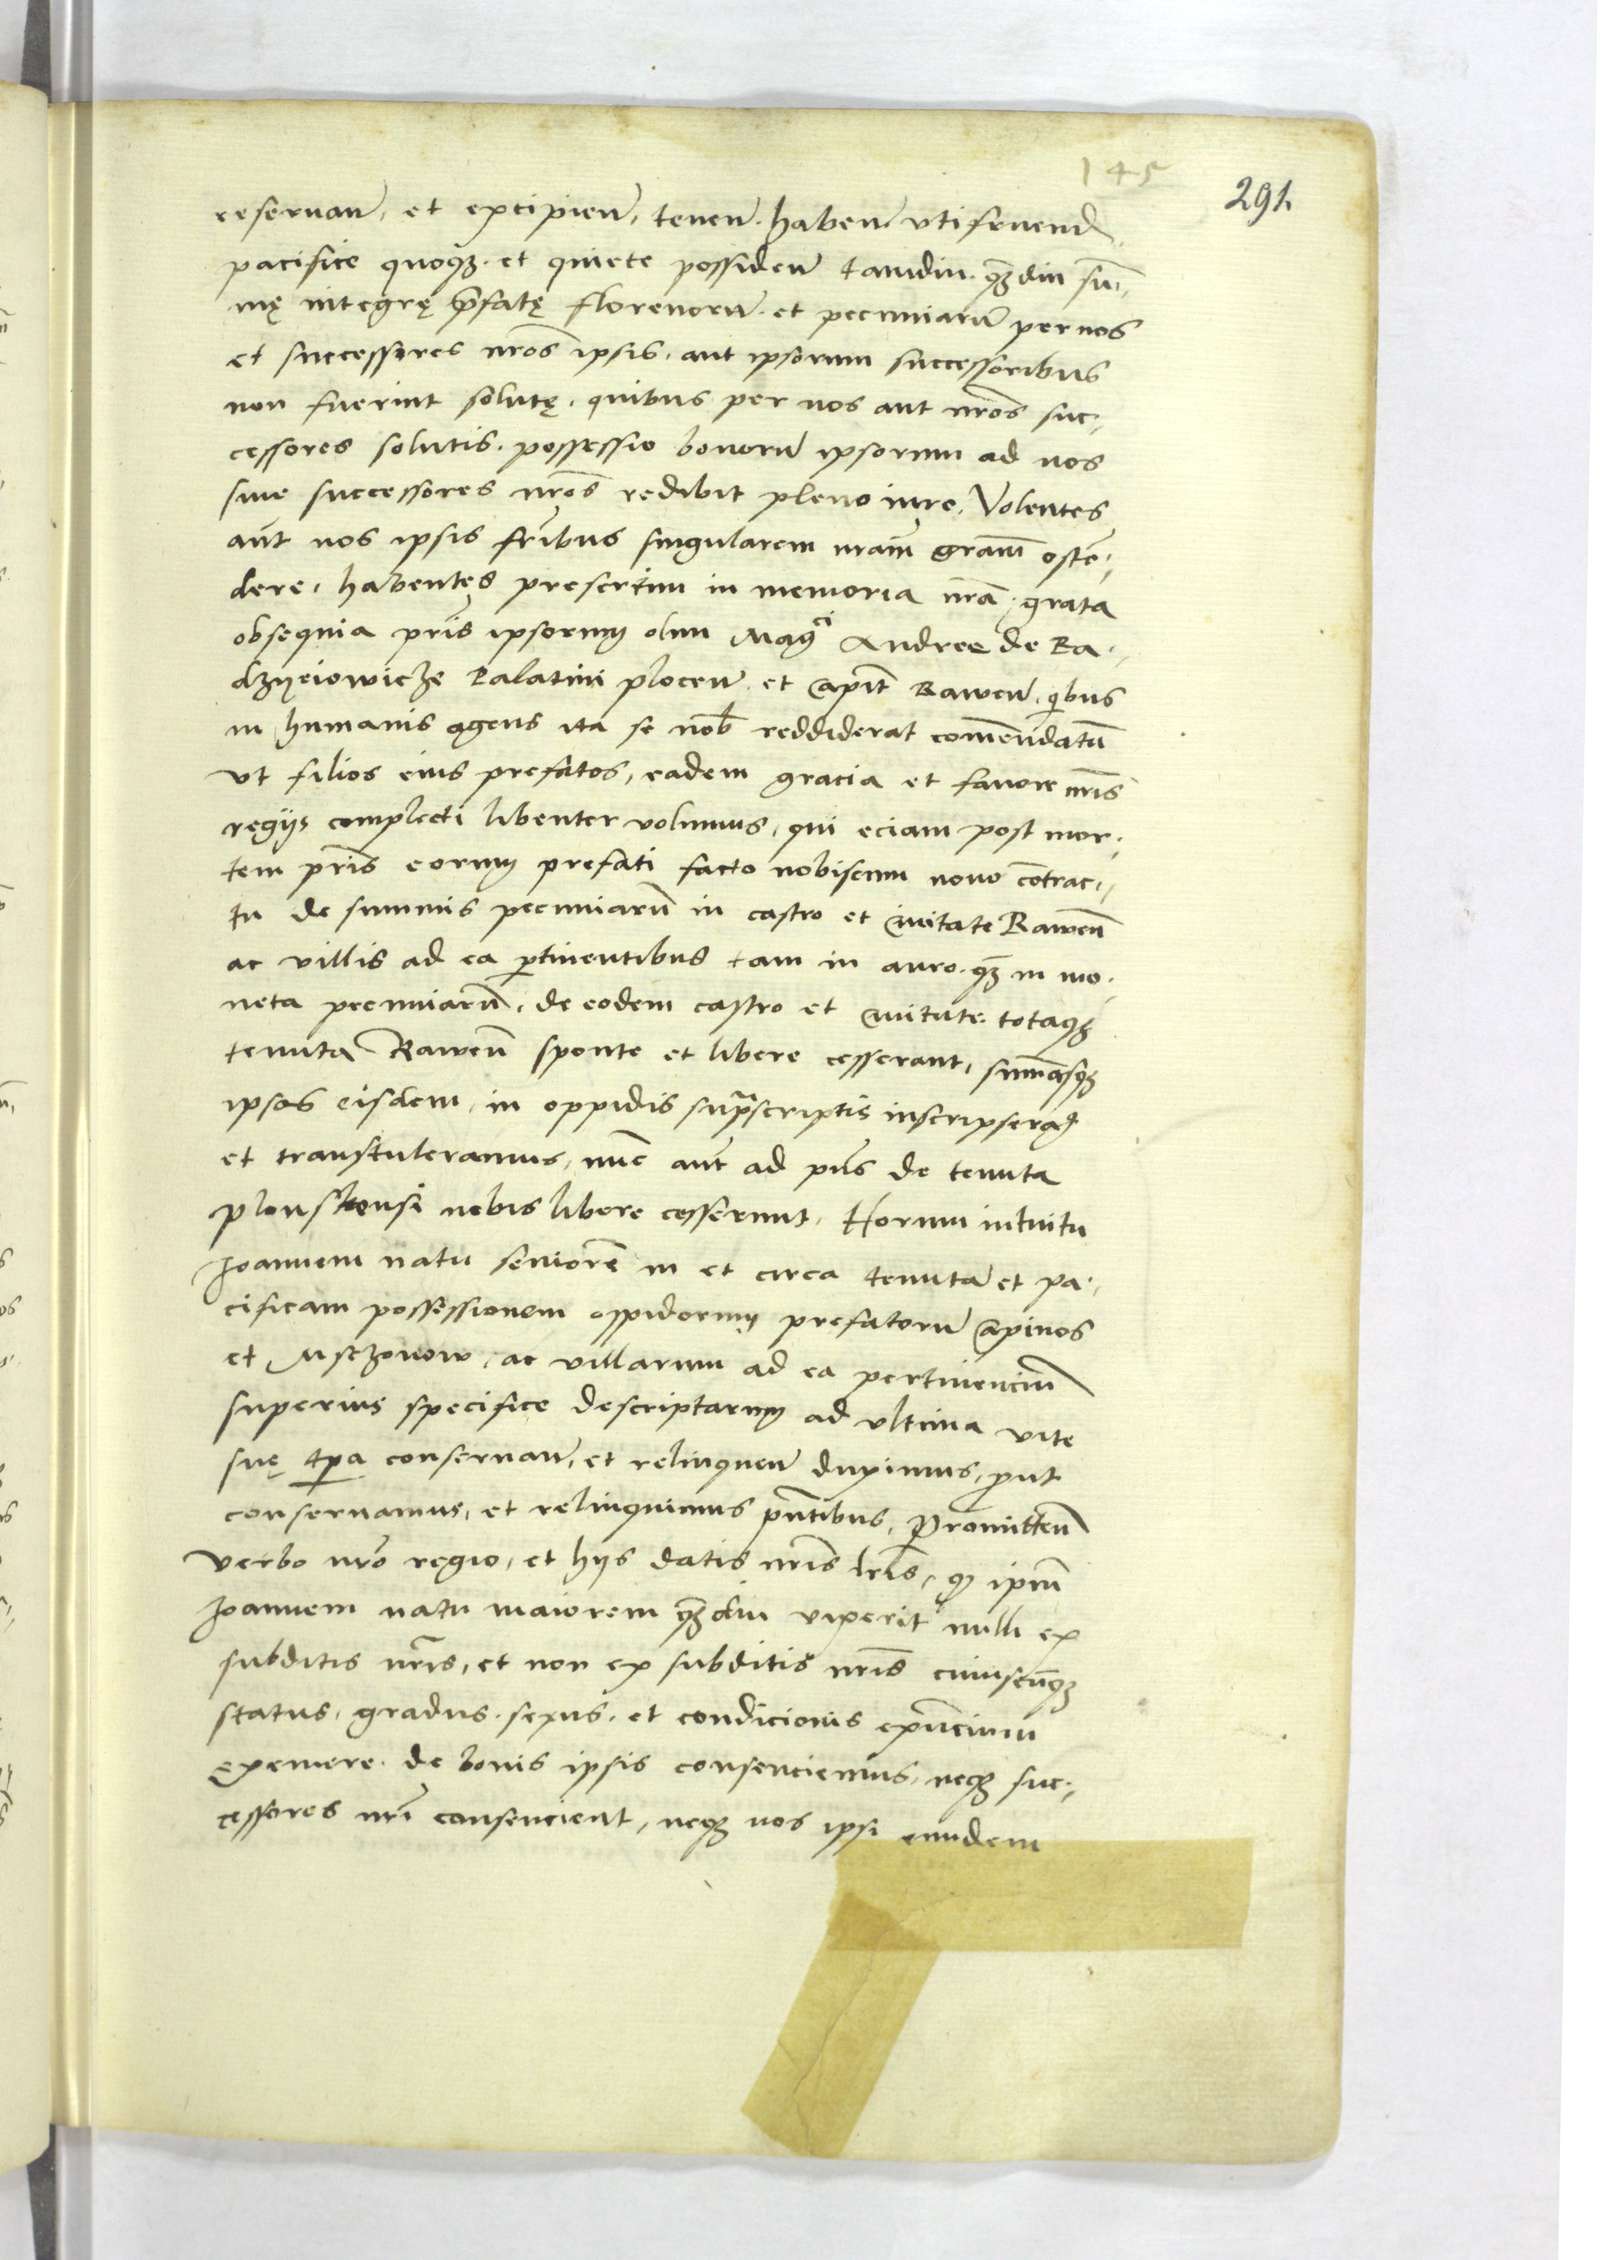 145
291
reseruan̄, et excipien̄, tenen̄. haben̄. vtifruend̄
pacifice quoqȝ. et quiete possiden̄ tamdiu. qȝdiu sum̄,,
mę integrę p̄fatę florenorū. et pecuniarū per nos
et successores nr̄os ipsis. aut ipsorum successoribus
non fuerint solutę. quibus per nos aut nr̄os suc,,
cessores solutis. possessio bonorū ipsorum ad nos
siue successores nr̄os redibit pleno iure. Volentes
aūt nos ipsis fr̄ibus singularem nr̄am gr̄am ostē,,
dere. habentes presertim in memoria nr̄a. grata
obsequia pr̄is ipsorum olim Mag̃ci Andree de Ra,,
dzyeiowicze Palatini plocen̄. et Capit̄ Rawen̄. qibus
in humanis agens ita se nob̄ reddiderat comēndatū
vt filios eius prefatos, eadem gracia et fauore nr̄is
regijs complecti libenter volumus, qui eciam post mor,,
tem pr̄is eorum prefati facto nobiscum nouo cōtrac,,
tu de summis pecuniarū in castro et Ciuitate Rawen̄
ac villis ad ea ꝑtinentibus tam in auro. qȝ in mo,,
neta pecuniarū. de eodem castro et Ciuitate. totaqȝ
tenuta Rawen̄ sponte et libere cesserant, sum̄asqȝ
ipsas eisdem, in oppidis sup̄scriptis inscripserāt
et transtuleramus, nūc aūt ad pn̄s de tenuta
plonskensi nobis libere cesserunt. Horum intuitu
Joannem natu seniorē in et circa tenutā et pa,,
cificam possessionem oppidorum prefatorū Capinos
et Msczonow, ac villarum ad ea pertinenciū
superius specifice descriptarum ad vltima vite
suę tꝑa conseruan̄, et relinquen̄ duximus, ꝓut
conseruamus, et relinquimus pn̄tibus, Promitten̄
verbo nr̄o regio, et hijs datis nr̄is lr̄is, qƺ ip̄m
Joannem natu maiorem qȝdiu vixerit nulli ex
subditis nr̄is, et non ex subditis nr̄is cuiuscūqȝ
status, gradus. sexus. et condicionis exn̄cium
exemere. de bonis ipsis consenciemus, neqȝ suc,,
cessores nr̄i consencient, neqȝ nos ipsi eundem